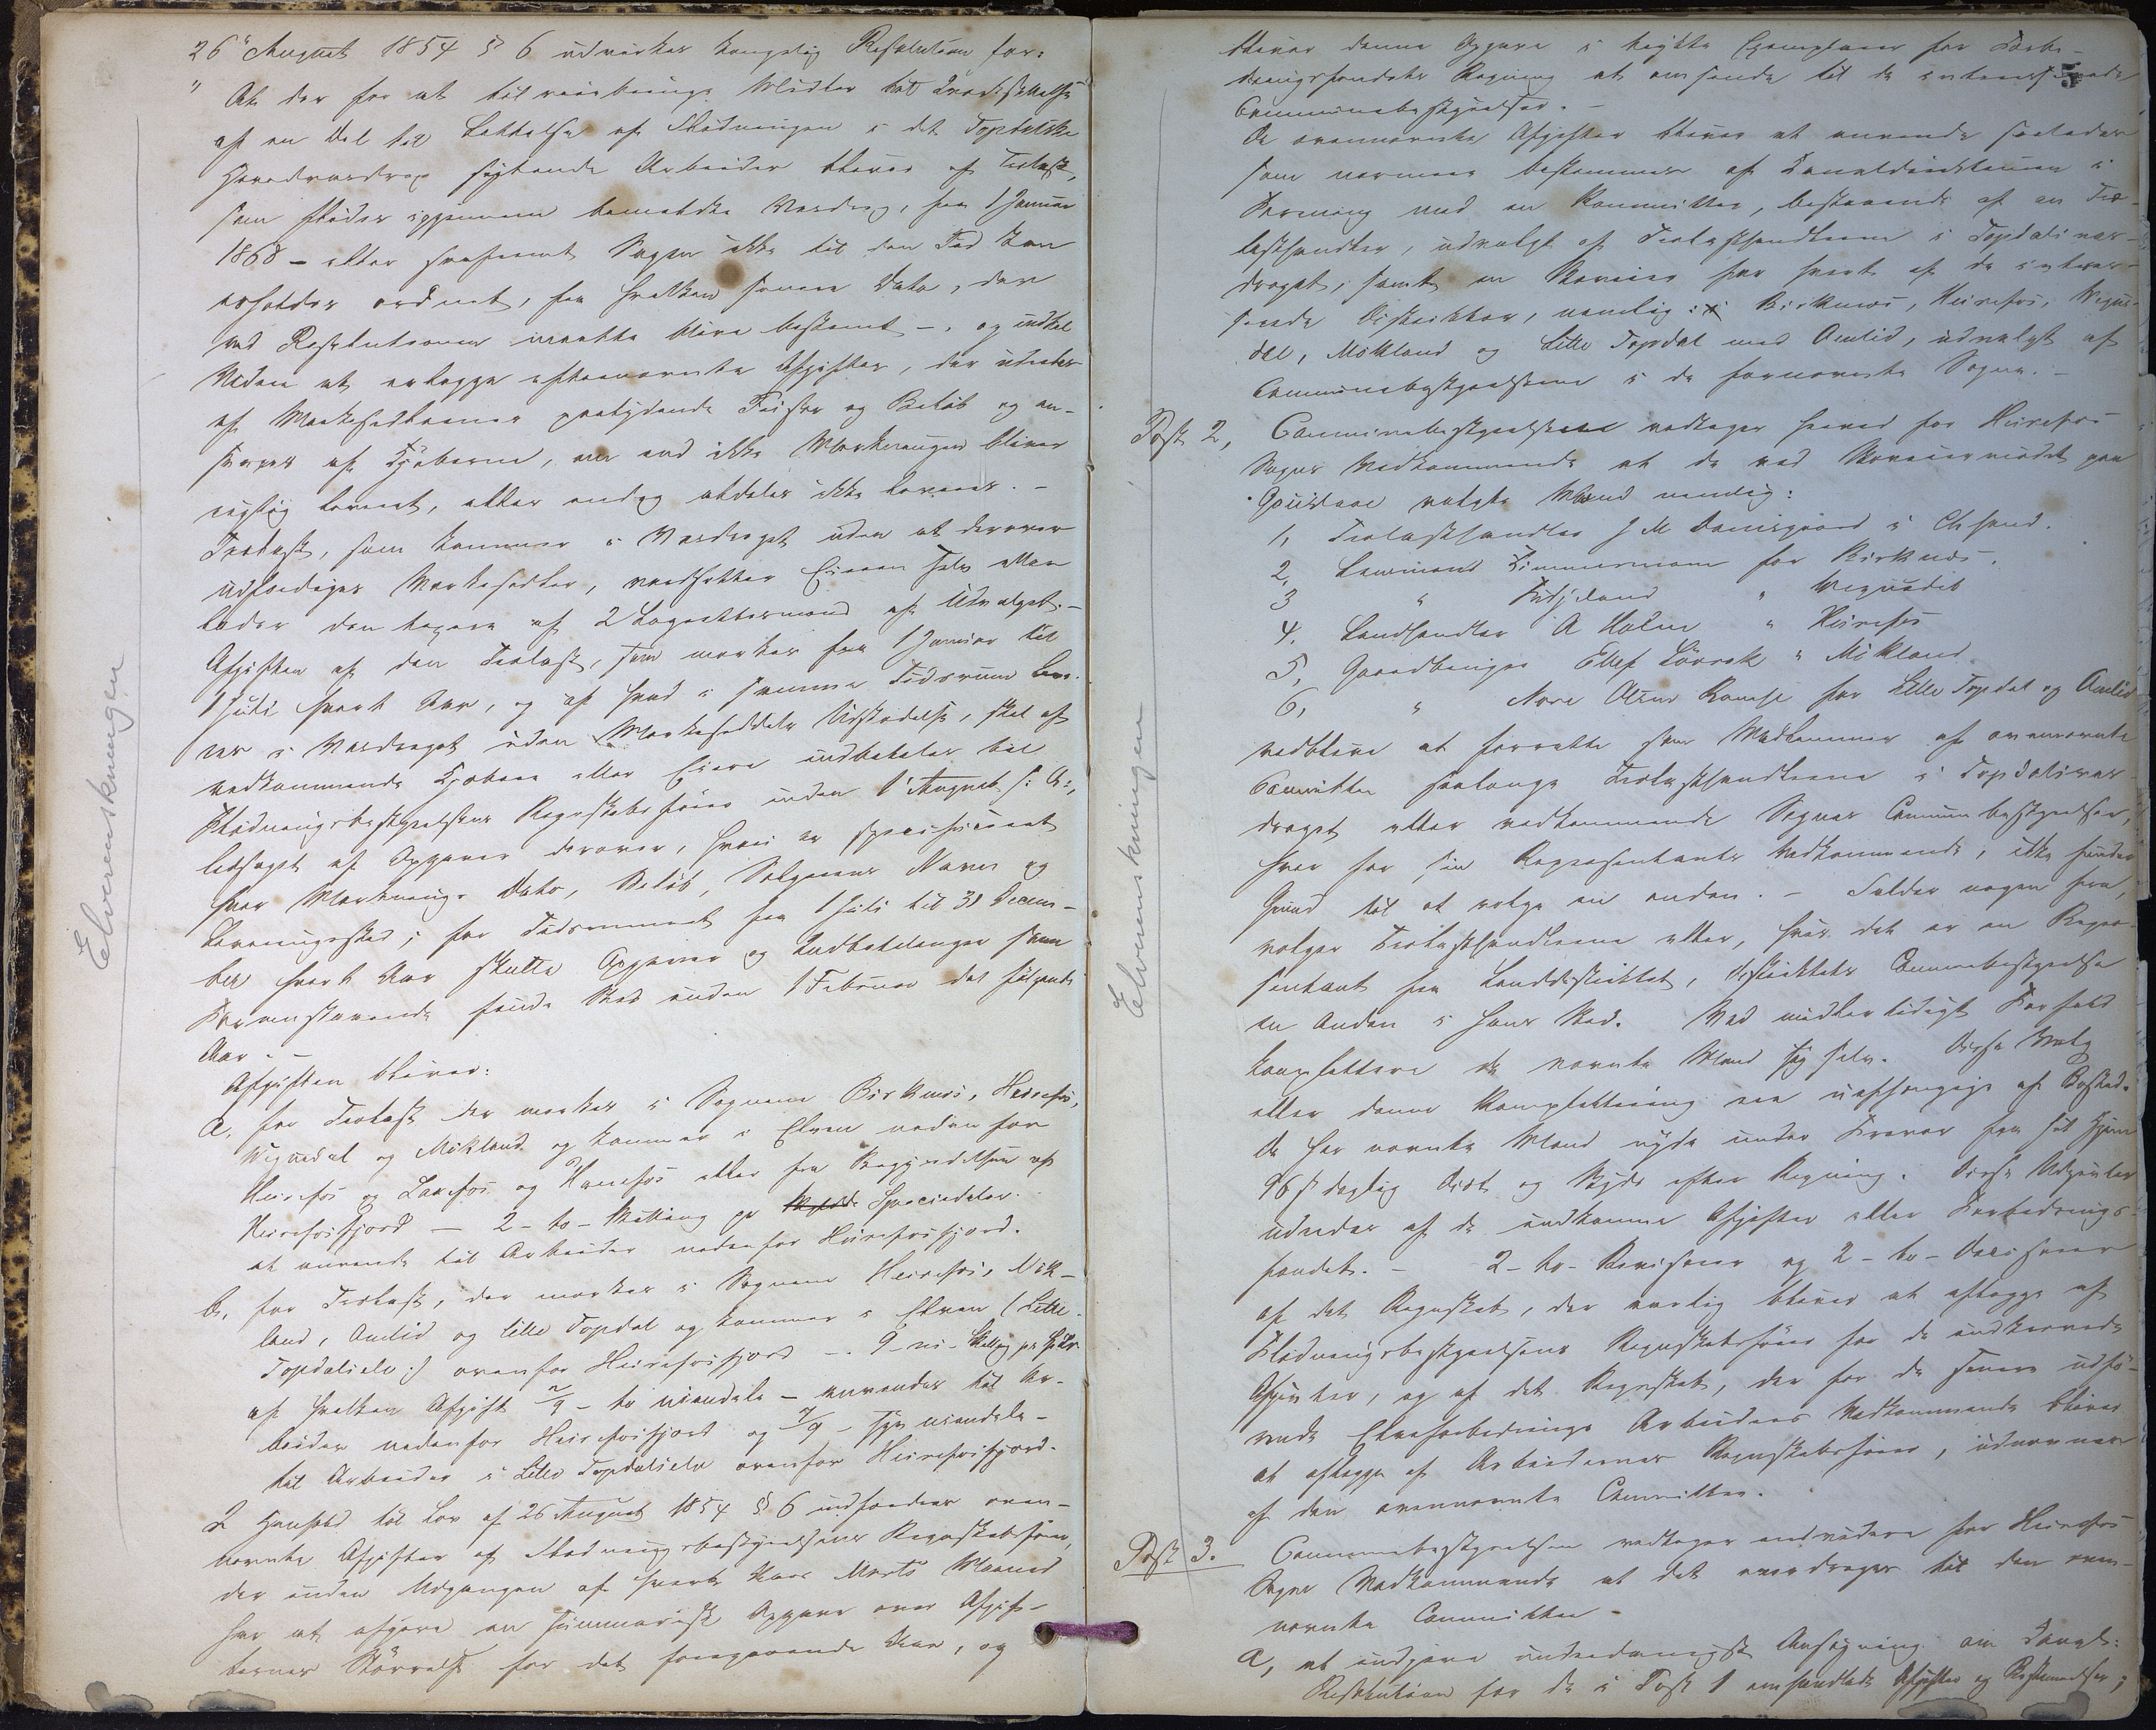 26de August 1854 § 6 udvirkes kongelig Resolution for:
" At der for at tilveiebringe Midler til Iverksættelse
af en Del til Lettelse af Flødningen i det Topdalske
Hovedvasdrag sigtende Arbeider bliver af Trælast,
som flødes igjennem bemeldte Vasdrag, fra 1 Januar
1868 – eller saafremt Sagen ikke til den Tid kan
erholdes ordnet, fra hvilken senere Dato, der
ved Resolutionen maatte blive bestemt –, og indtil
Videre at erlægge eftenævnte Afgifter, der udredes
af Mærkesedlernes paalydende Priser og Beløb og an-
svares af Kjøberne, om end ikke Mærkningen bliver
rigtig leveret, eller endog aldeles ikke leveres. –
Trælast, som kommer i Vasdraget uden at derover
udfærdiges Mærkesedler, værdsætter Eieren selv eller
lader den taxere af 2 Lagrettesmænd af Udvalget. –
Afgiften af den Trælast, som mærkes fra 1 Januar til
1 Juli hvert Aar, og af hvad i samme Tidsrum leve-
res i Vasdraget uden Mærkeseddels Udstædelse, skal af
vedkommende Kjøbere eller Eiere indbetales til
Flødningsbestyrelsens Regnskabsfører inden 1 August s: A:,
ledsaget af Opgaver derover, hvori er specificeret
hver Mærknings Dato, Beløb, Sælgerens Navn og
Leveringssted; for Tidsrummet fra 1 Juli til 31 Decem-
ber hvert Aar skulle Opgaver og Indbetalinger som
Foranstaaende finde Sted inden 1 Februar det følgende
Aar. –
Afgiften bliver:
a, for Trælast der mærkes i Sognene Birkenes, Heirefos,
Vegusdal og Mikland og kommer i Elven nedenfor
Heirefos og Laxefos og Hanefos eller fra Begyndelsen af
Heirefosfjord — 2 – to – Skilling pr Speciedaler.
at anvende til Arbeider nedenfor Heirefosfjord.
b, for Trælast, der mærkes i Sognene Heirefos, Mik-
land, Aamlid og lille Topdal og kommer i Elven (Lille
Topdalselv:) ovenfor Heirefosfjord –. 9 – ni – Skilling pr Spdlr
af hvilken Afgift 2/9 – to niendele – anvendes til Ar-
beider nedenfor Heirefosfjord og 7/9 – syv niendele –
til Arbeider i Lille Topdalselv ovenfor Heirefosfjord.
I Henhold til Lov af 26 August 1854 § 6 indfordres oven-
nævnte Afgifter af Flødningsbestyrelsens Regnskabsfører,
der inden Udgangen af hvert Aars Marts Maaned
har at afgive en summarisk Opgave over Afgif-
ternes Størrelse for det foregaaende Aar, og
Elverenskningen
5
bliver denne Opgave i trykte Exemplarer for Forbe-
dringsfondets Regning at omsende til de interesserede
Communebestyrelser. –
De ovennævnte Afgifter bliver at anvende saaledes
som nærmere bestemmes af Kanaldirekteuren i
Forening med en Kommitte, bestaaende af en Træ-
lasthandler, udvalgt af Trælasthandlerne i Topdalsvas-
draget, samt en Skoveier for hvert af de interes-
serede Distrikter, nemlig: Birkenes, Heirefos, Vegus-
dal, Mikland og Lille Topdal med Aamlid, udvalgt af
Communebestyrelserne i de fornævnte Sogne. –
Post 2, Communebestyrelsen vedtager herved for Heirefos
Sogns Vedkommende at de ved Skoveiermødet paa
valgte Mænd nemlig:
1, Trælasthandler J M Damsgaard i Chsand.
2, Lensmand Timmermann for Birkenes.
3 " " Vegusdal
4. Landhandler A Holm " Heirefos
5, Gaardbruger Ellef " Mikland
6, " Aore Olsen Ramse for Lille Topdal og Aamlid
vedblive at forrette som Medlemmer af ovennævnte
Committe saalænge Trælasthandlerne i Topdalsvas-
draget eller vedkommende Sognes Communebestyrelser,
hver for sin Repræsentants Vedkommende, ikke finder
Grund til at vælge en anden. – Falder nogen fra,
vælger Trælasthandlerne eller, hvis det er en Repræ-
sentant fra Landdistriktet, Distriktets Communebestyrelse
en Anden i hans Sted. Ved midlertidigt Forfald
komplettere de nævnte Mænd sig selv. Disse Valg
eller denne Komplettering ere uafhængige af Bosted.
De her nævnte Mænd nyde under Fravær fra sit Hjem
96 s daglig Diæt og Skyds efter Regning. Disse Udgifter
udredes af de indkomne Afgifter eller Forbedrings-
fondet. – 2 – to – Revisorer og 2 – to – Decisorer
af det Regnskab, der aarlig bliver at aflægge af
Flødningsbestyrelsens Regnskabsfører for de indkrævede
Afgifter, og af det Regnskab, der for de senere udfø-
rende Elveforbedrings Arbeiders Vedkommende bliver
at aflægge af Arbeidernes Regnskabsfører, udnævnes
af den ovennævnte Committe.
Post 3. Communebestyrelsen vedtager endvidere for Heirefos
Sogns Vedkommende at det overdrages til den oven-
nævnte Committe –
a, at indgive underdanigst Ansøgning om Kongl:
Resolution for de i Post 1 omhandlede Afgifter og Bestemmelser;
Elverenskningen